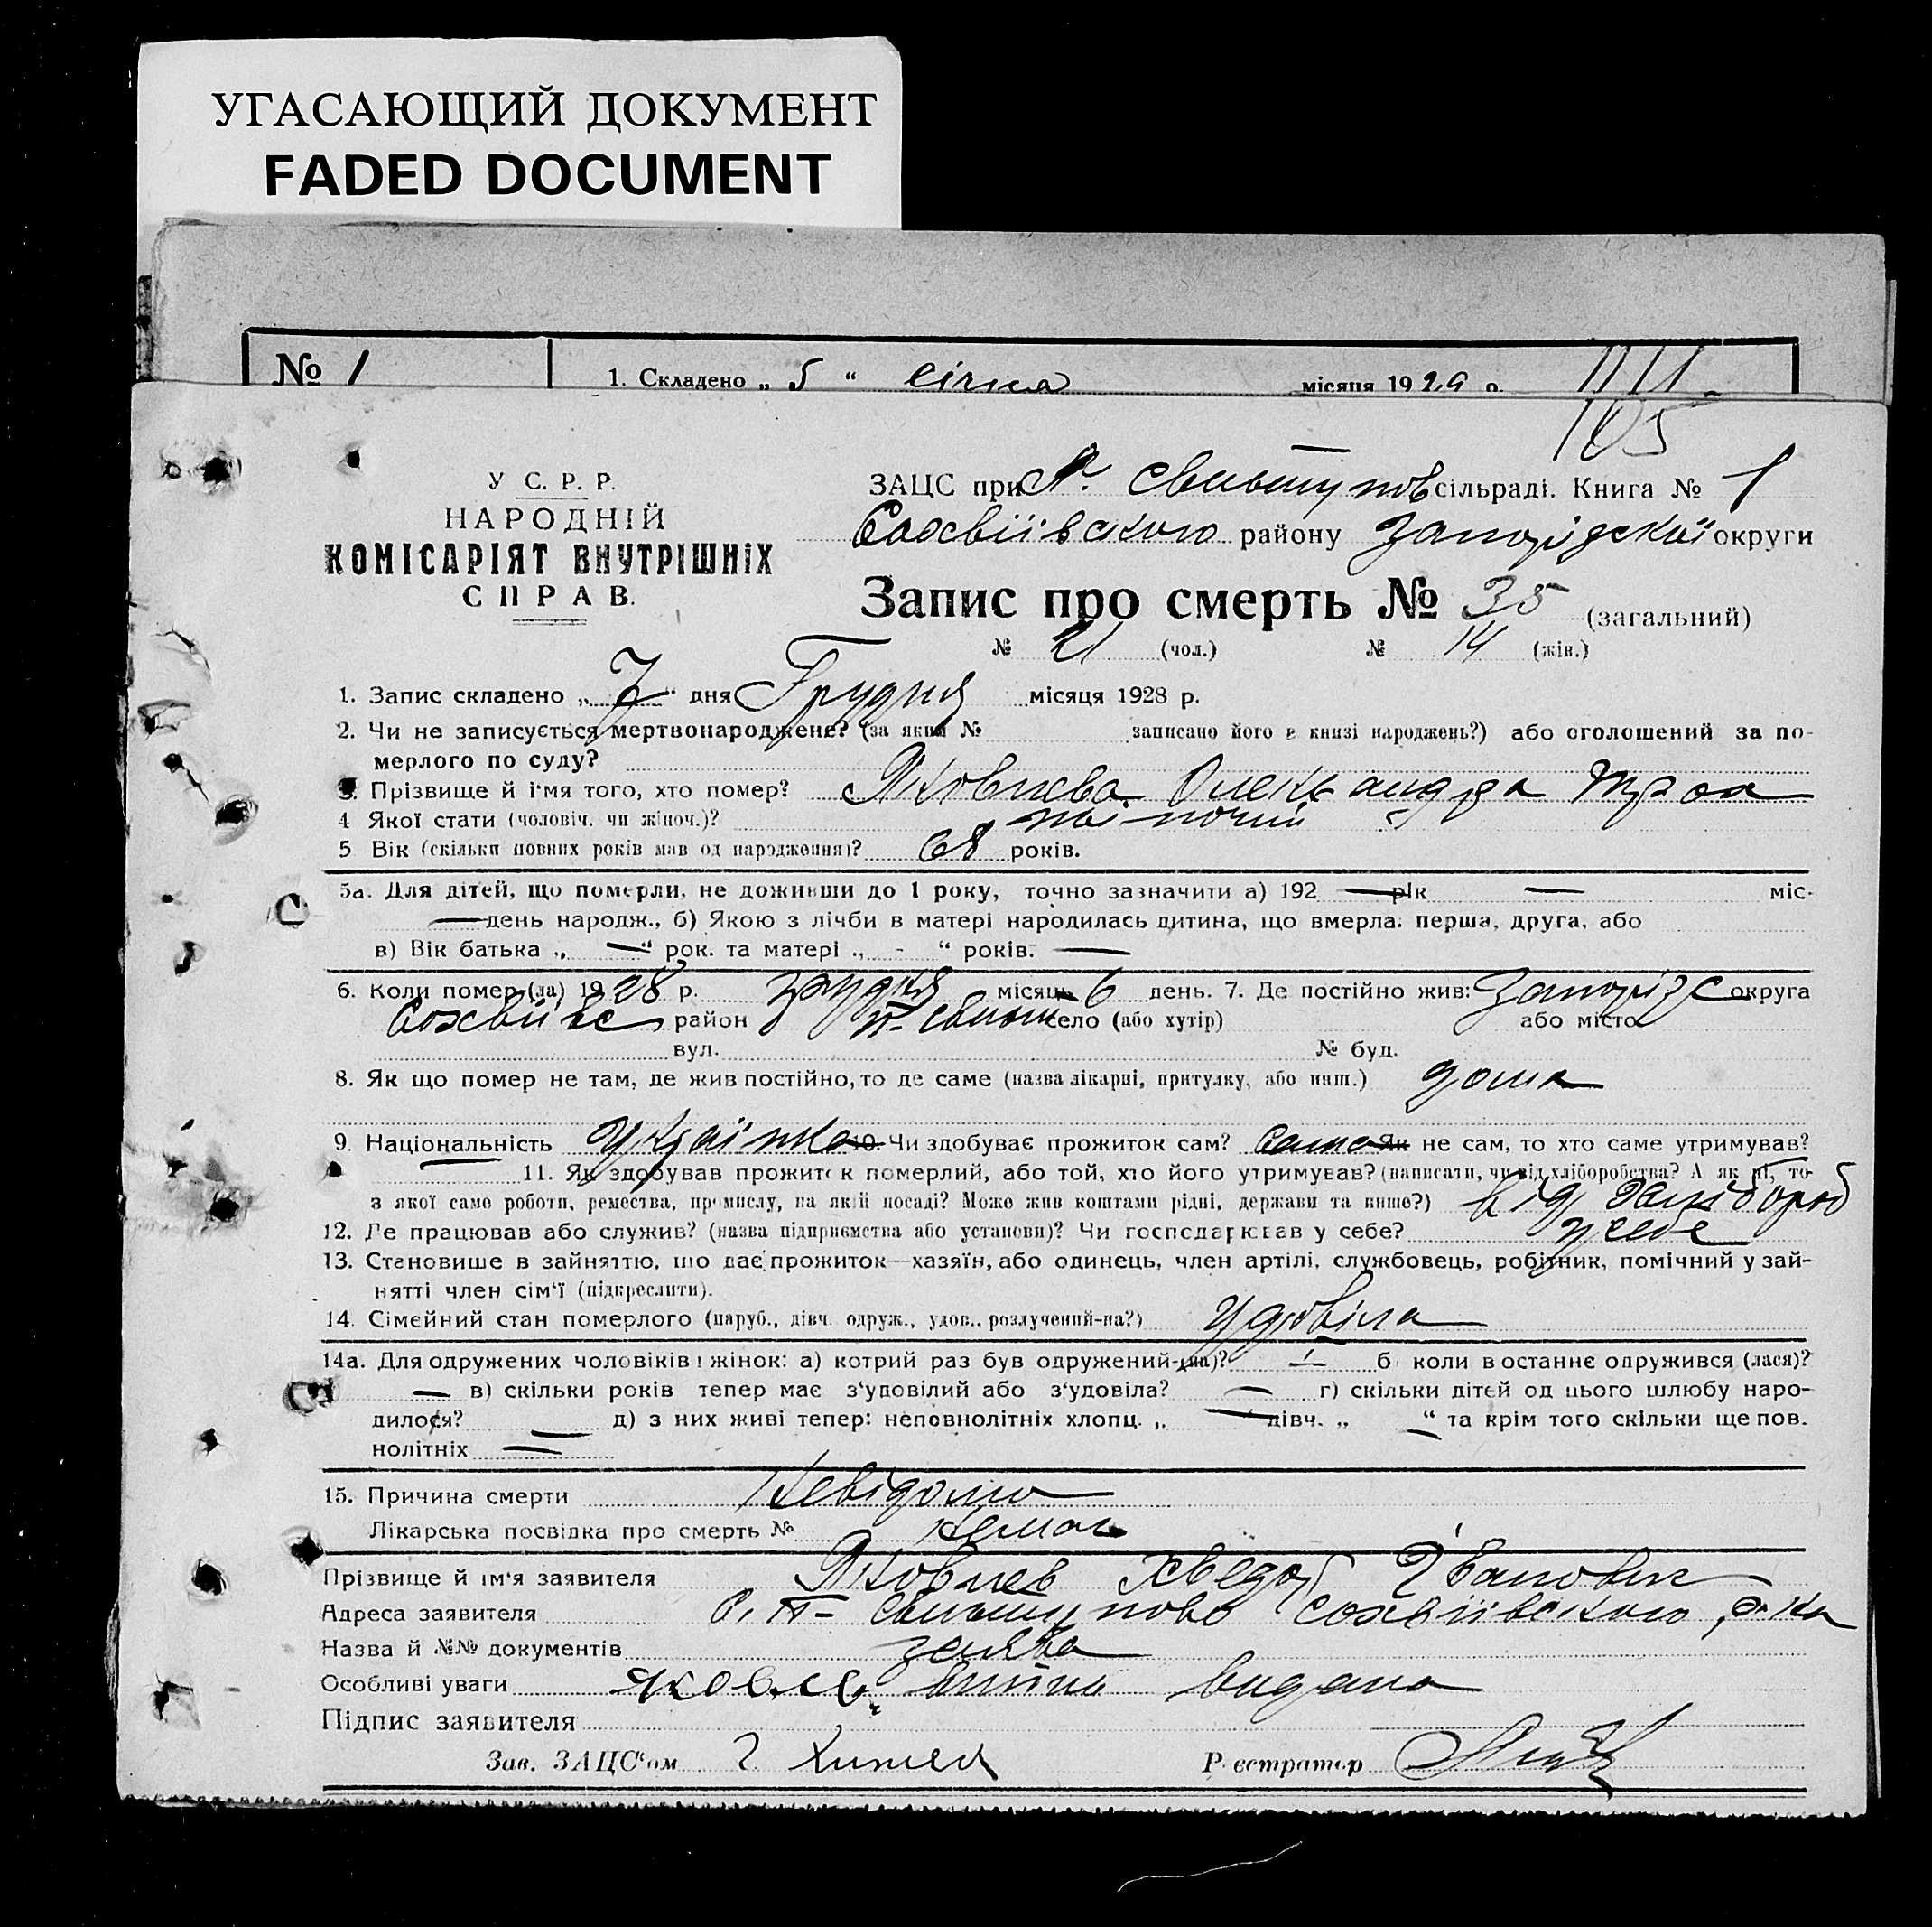 УГАСАЮЩИЙ ДОКУМЕНТ
FADED DOCUMENT
№ 1 1. Складено „ 5 “ січня місяця 1929 р.
105
У С. Р. Р.
НАРОДНІЙ
КОМІСАРІЯТ ВНУТРІШНІХ
СПРАВ.
ЗАЦС при сільраді. Книга № 1
Софіївського району Запорізької округи
Запис про смерть № 35 (загальний)
№ 21 (чол.) № 14 (жін.)
1. Запис складено „ 7 “ дня Грудня місяця 1928 р.
2. Чи не записується мертвонароджене? (за яким № записано його в книзі народжень?) або оголошений за по-
мерлого по суду?
3. Прізвище й ім'я того, хто помер? Яковлева Олександра
4 Якої стати (чоловіч. чи жіноч.)?
5 Вік (скільки повних років мав од народження)? 68 років.
5а. Для дітей, що померли, не доживши до 1 року, точно зазначити а) 192 — рік — міс.
— день народж., б) Якою з лічби в матері народилась дитина, що вмерла: перша, друга, або
в) Вік батька „ — “ рок. та матері „ - “ років. —
6. Коли помер (ла) 1928 р. грудня місяць 6 день. 7. Де постійно жив: Запоріз округа
район село (або хутір) або місто
вул. № буд.
8. Як що помер не там, де жив постійно, то де саме (назва лікарні, притулку, або инш.) дома
9. Національність Українка 10. Чи здобуває прожиток сам? сама Як не сам, то хто саме утримував?
— 11. Як здобував прожиток померлий, або той, хто його утримував? (написати, чи від хліборобства? А як ні, то
з якої саме роботи, ремества, промислу, на якій посаді? Може жив коштами рідні, держави та инше?) від хлібороб
12. Де працював або служив? (назва підприємства або установи)? Чи господарював у себе? у себе
13. Становише в зайняттю, що дає прожиток—хазяїн, або одинець, член артілі, службовець, робітник, помічний у зай-
нятті член сім'ї (підкреслити).
14. Сімейний стан померлого (паруб., дівч. одруж., удов., розлучений-на?) удовіла
14а. Для одружених чоловіків і жінок: а) котрий раз був одружений-(на)? — б) коли в останнє одружився (лася)?
— в) скільки років тепер має з'удовілий або з'удовіла? — г) скільки дітей од цього шлюбу наро-
дилося? — д) з них живі тепер: неповнолітніх хлопц. „ — дівч. „ “ та крім того скільки ще пов.
нолітніх —
15. Причина смерти Невідома
Лікарська посвідка про смерть № Немає
Прізвище й ім'я заявителя Яковлев Хведор Іванович
Адреса заявителя Софіївського р-на
Назва й №№ документів заява
Особливі уваги видана
Підпис заявителя
Зав. ЗАЦС'ом Реєстратор